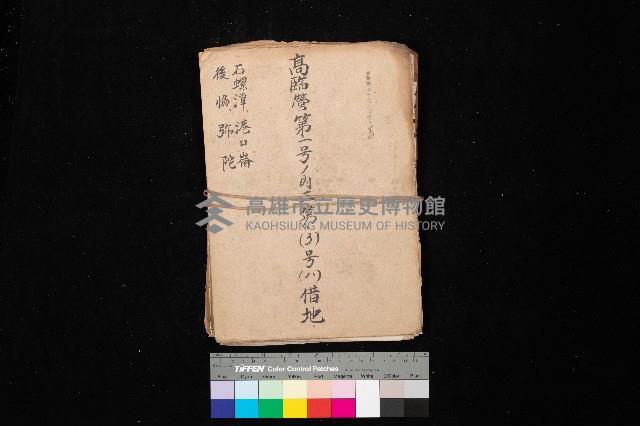 高臨營第一号ノ内三第(3)号(ハ)借地
石螺潭、港口崙
後協、弥陀
高雄市立歷史博物館
KAOHSIUNG MUSEUM OF HISTORY
TIFFEN Color Control Patches
Blue Cyan Green Yellow Red Magenta White 3/Color Black